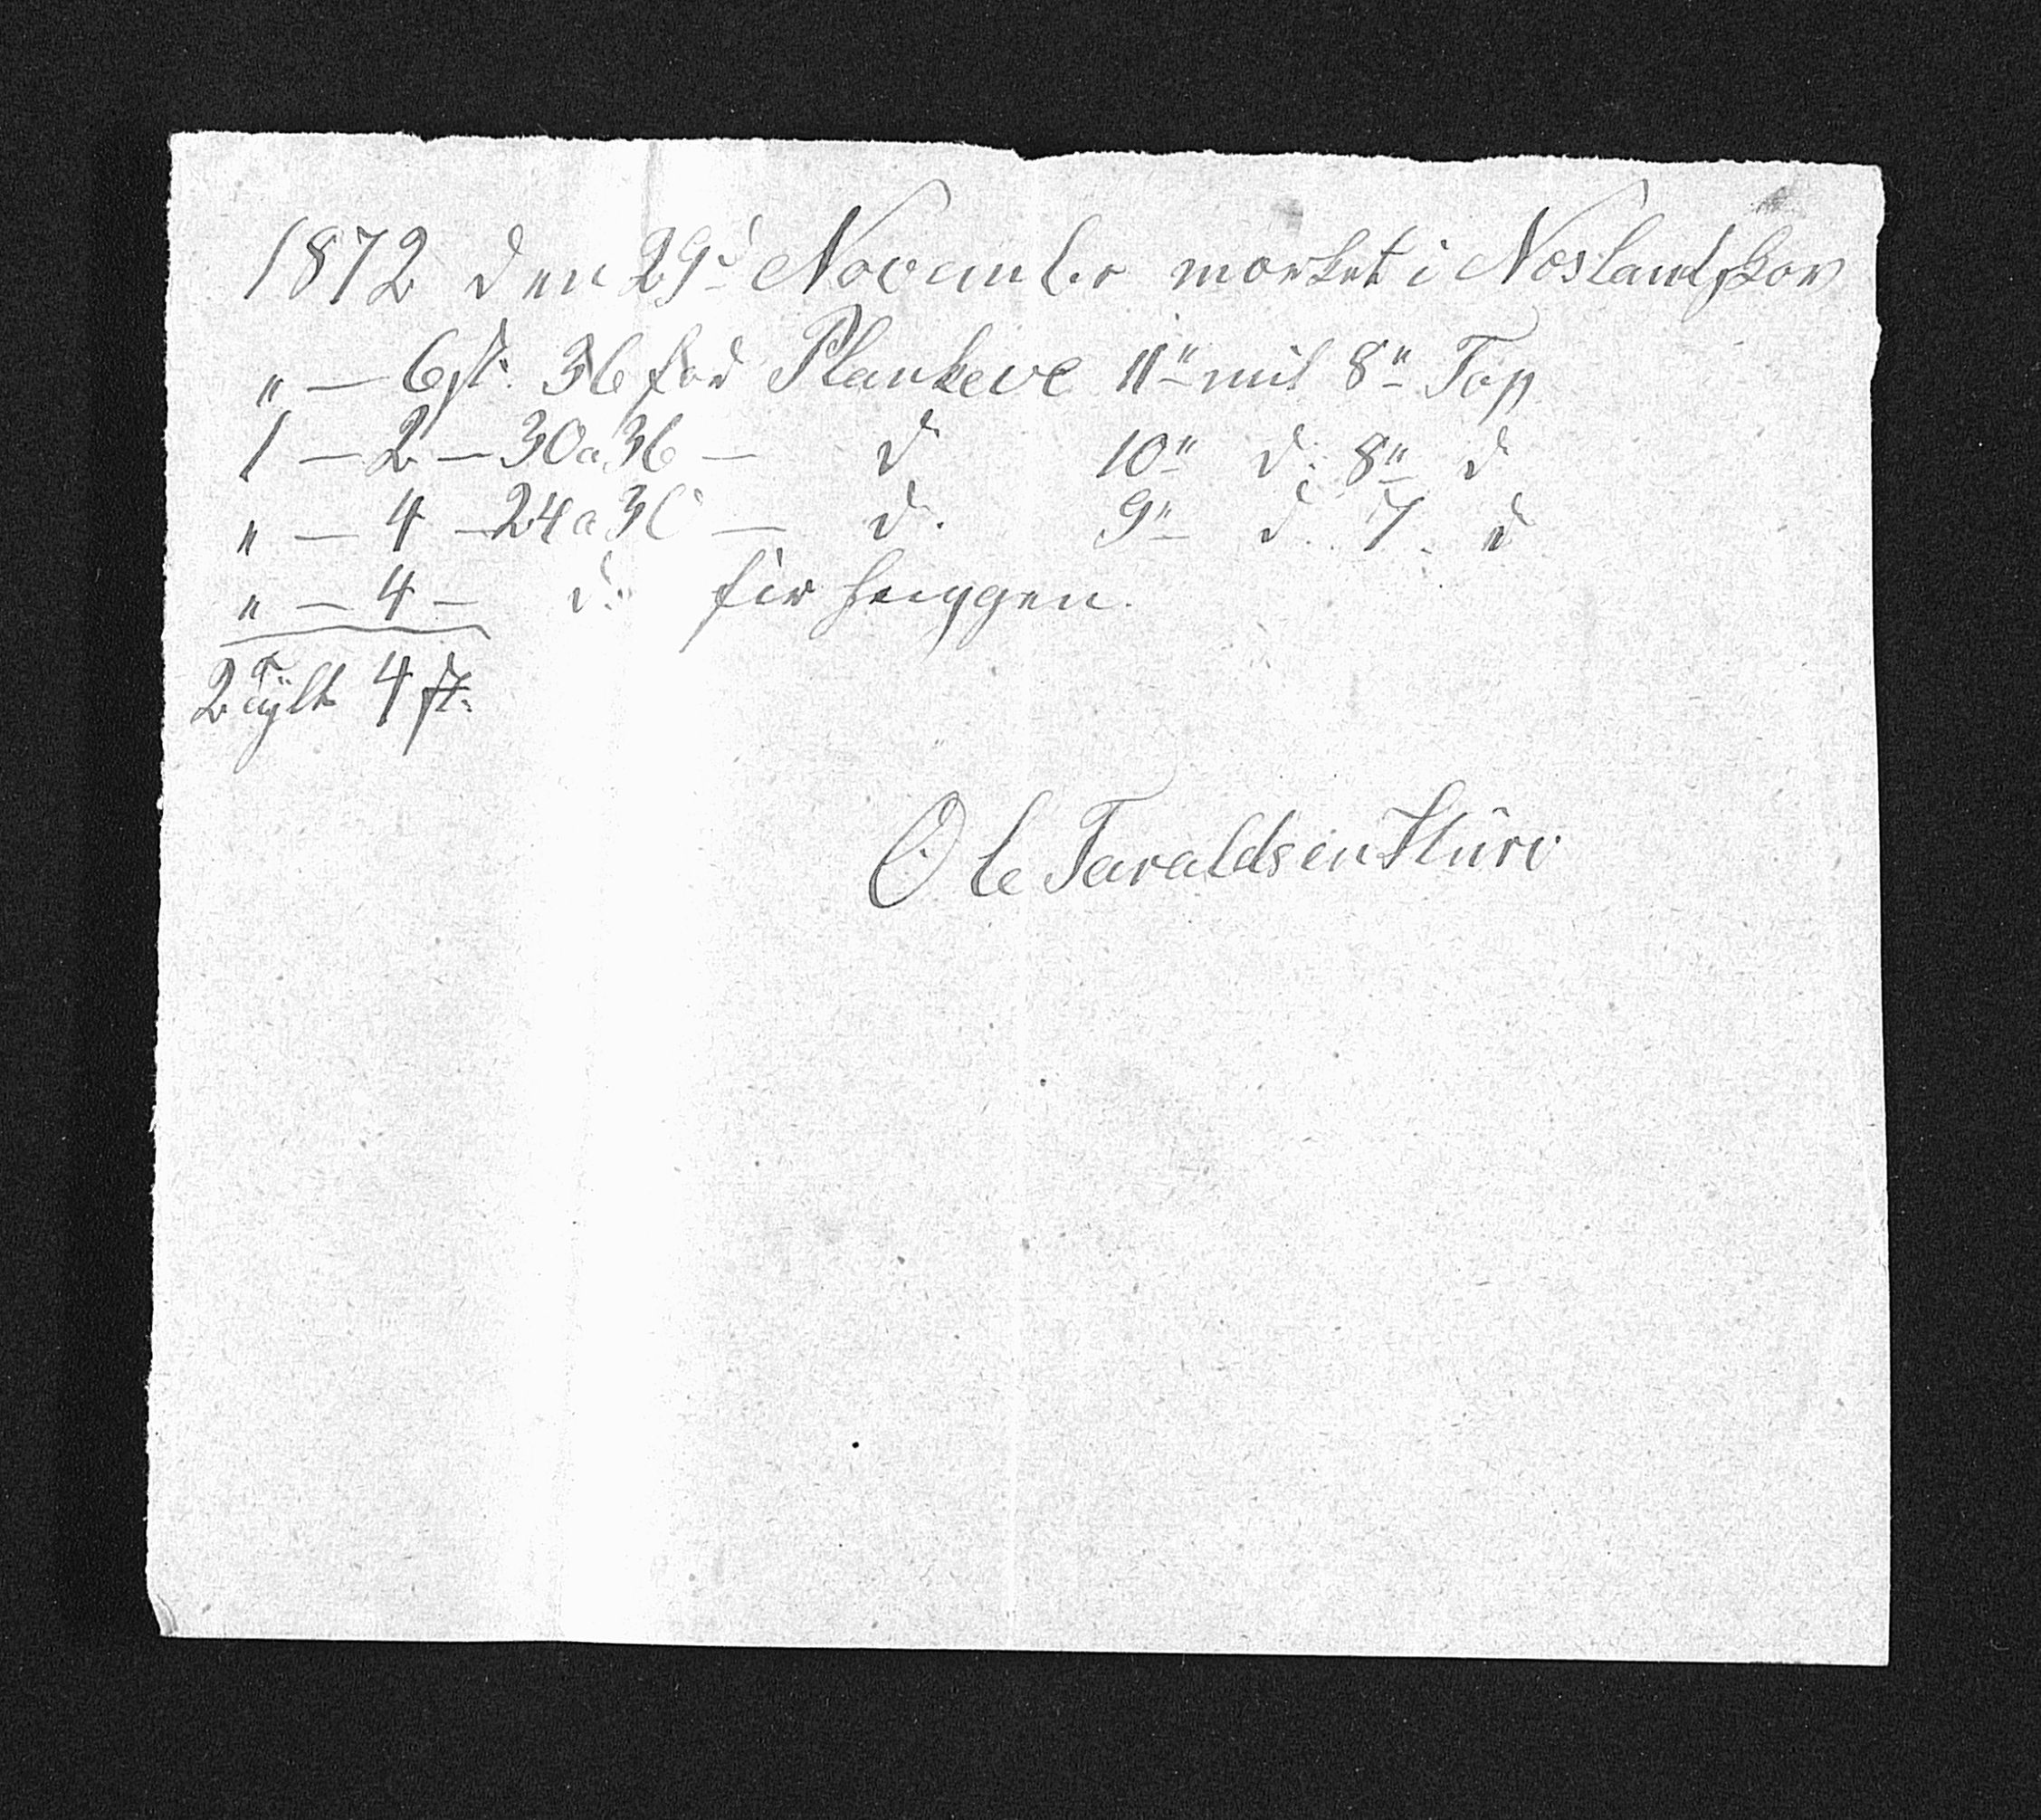 1872 den 29d November morket i Noslandskov
" — 6 st. 36 fod Plankeve 11" mil 8" Top
1 — 2 — 30 a 36 — d 10" d: 8" d
" — 4 — 24 a 30 — d. 9" d. 7. d
" — 4 — d: for heiggen.
2 Tylt 4 st.
Ole Taraldsen